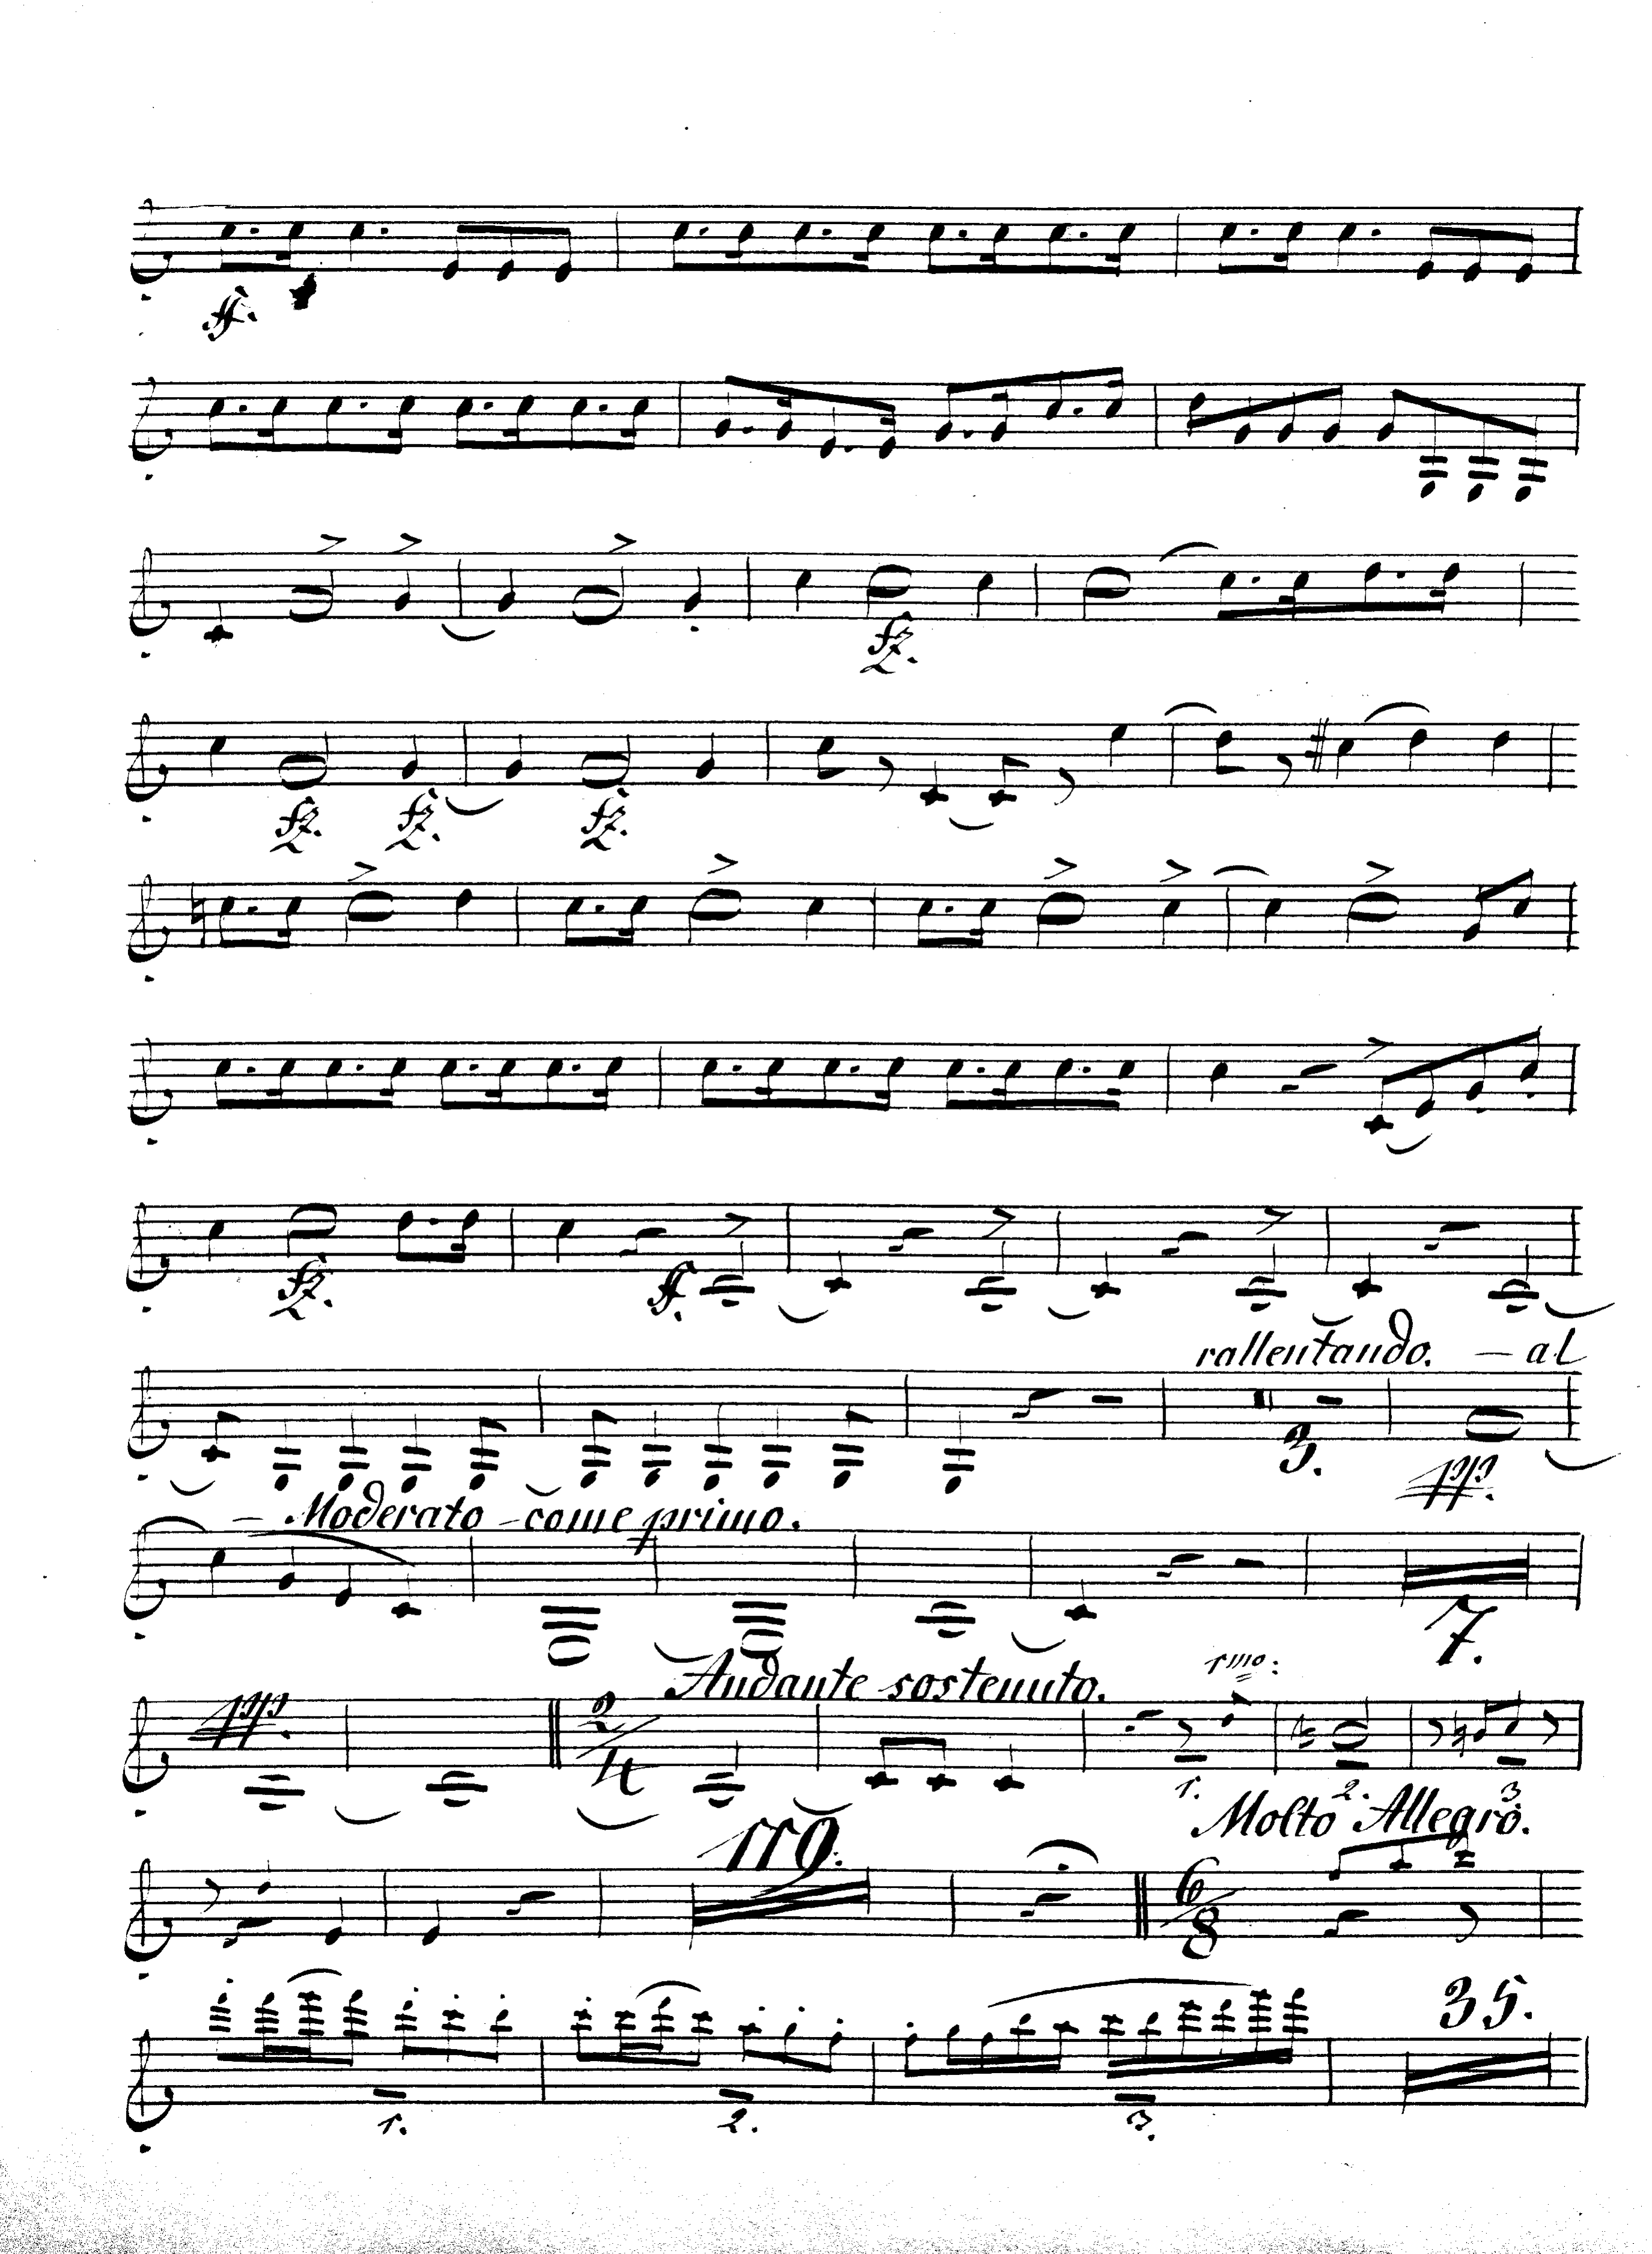 ff.
fz.
fz. fz. fz.
fz. ff.
rallentando. — al
3. ppp.
— Moderato — come primo.
7.
ppp. Andante sostenuto. 1mo:
2/4
1. 2. 3.
119. Molto Allegro.
6/8
35.
1. 2. 3.